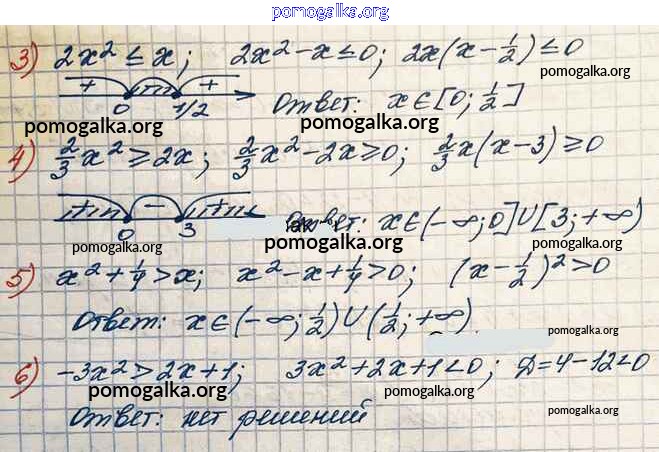 pomogalka.org
3) 2x² ≤ x; 2x² - x ≤ 0; 2x(x - 1/2) ≤ 0
pomogalka.org
+ - +
0 1/2 Ответ: x ∈ [0; 1/2]
pomogalka.org pomogalka.org
4) 2/3x² ≥ 2x; 2/3x² - 2x ≥ 0; 2/3x(x - 3) ≥ 0
pomogalka.org
+ - +
0 3 Ответ: x ∈ (-∞; 0] ∪ [3; +∞)
pomogalka.org pomogalka.org pomogalka.org
5) x² + 1/4 > x; x² - x + 1/4 > 0; (x - 1/2)² > 0
Ответ: x ∈ (-∞; 1/2) ∪ (1/2; +∞)
pomogalka.org
6) -3x² > 2x + 1; 3x² + 2x + 1 < 0; D = 4 - 12 < 0
pomogalka.org pomogalka.org pomogalka.org
Ответ: нет решений
pomogalka.org